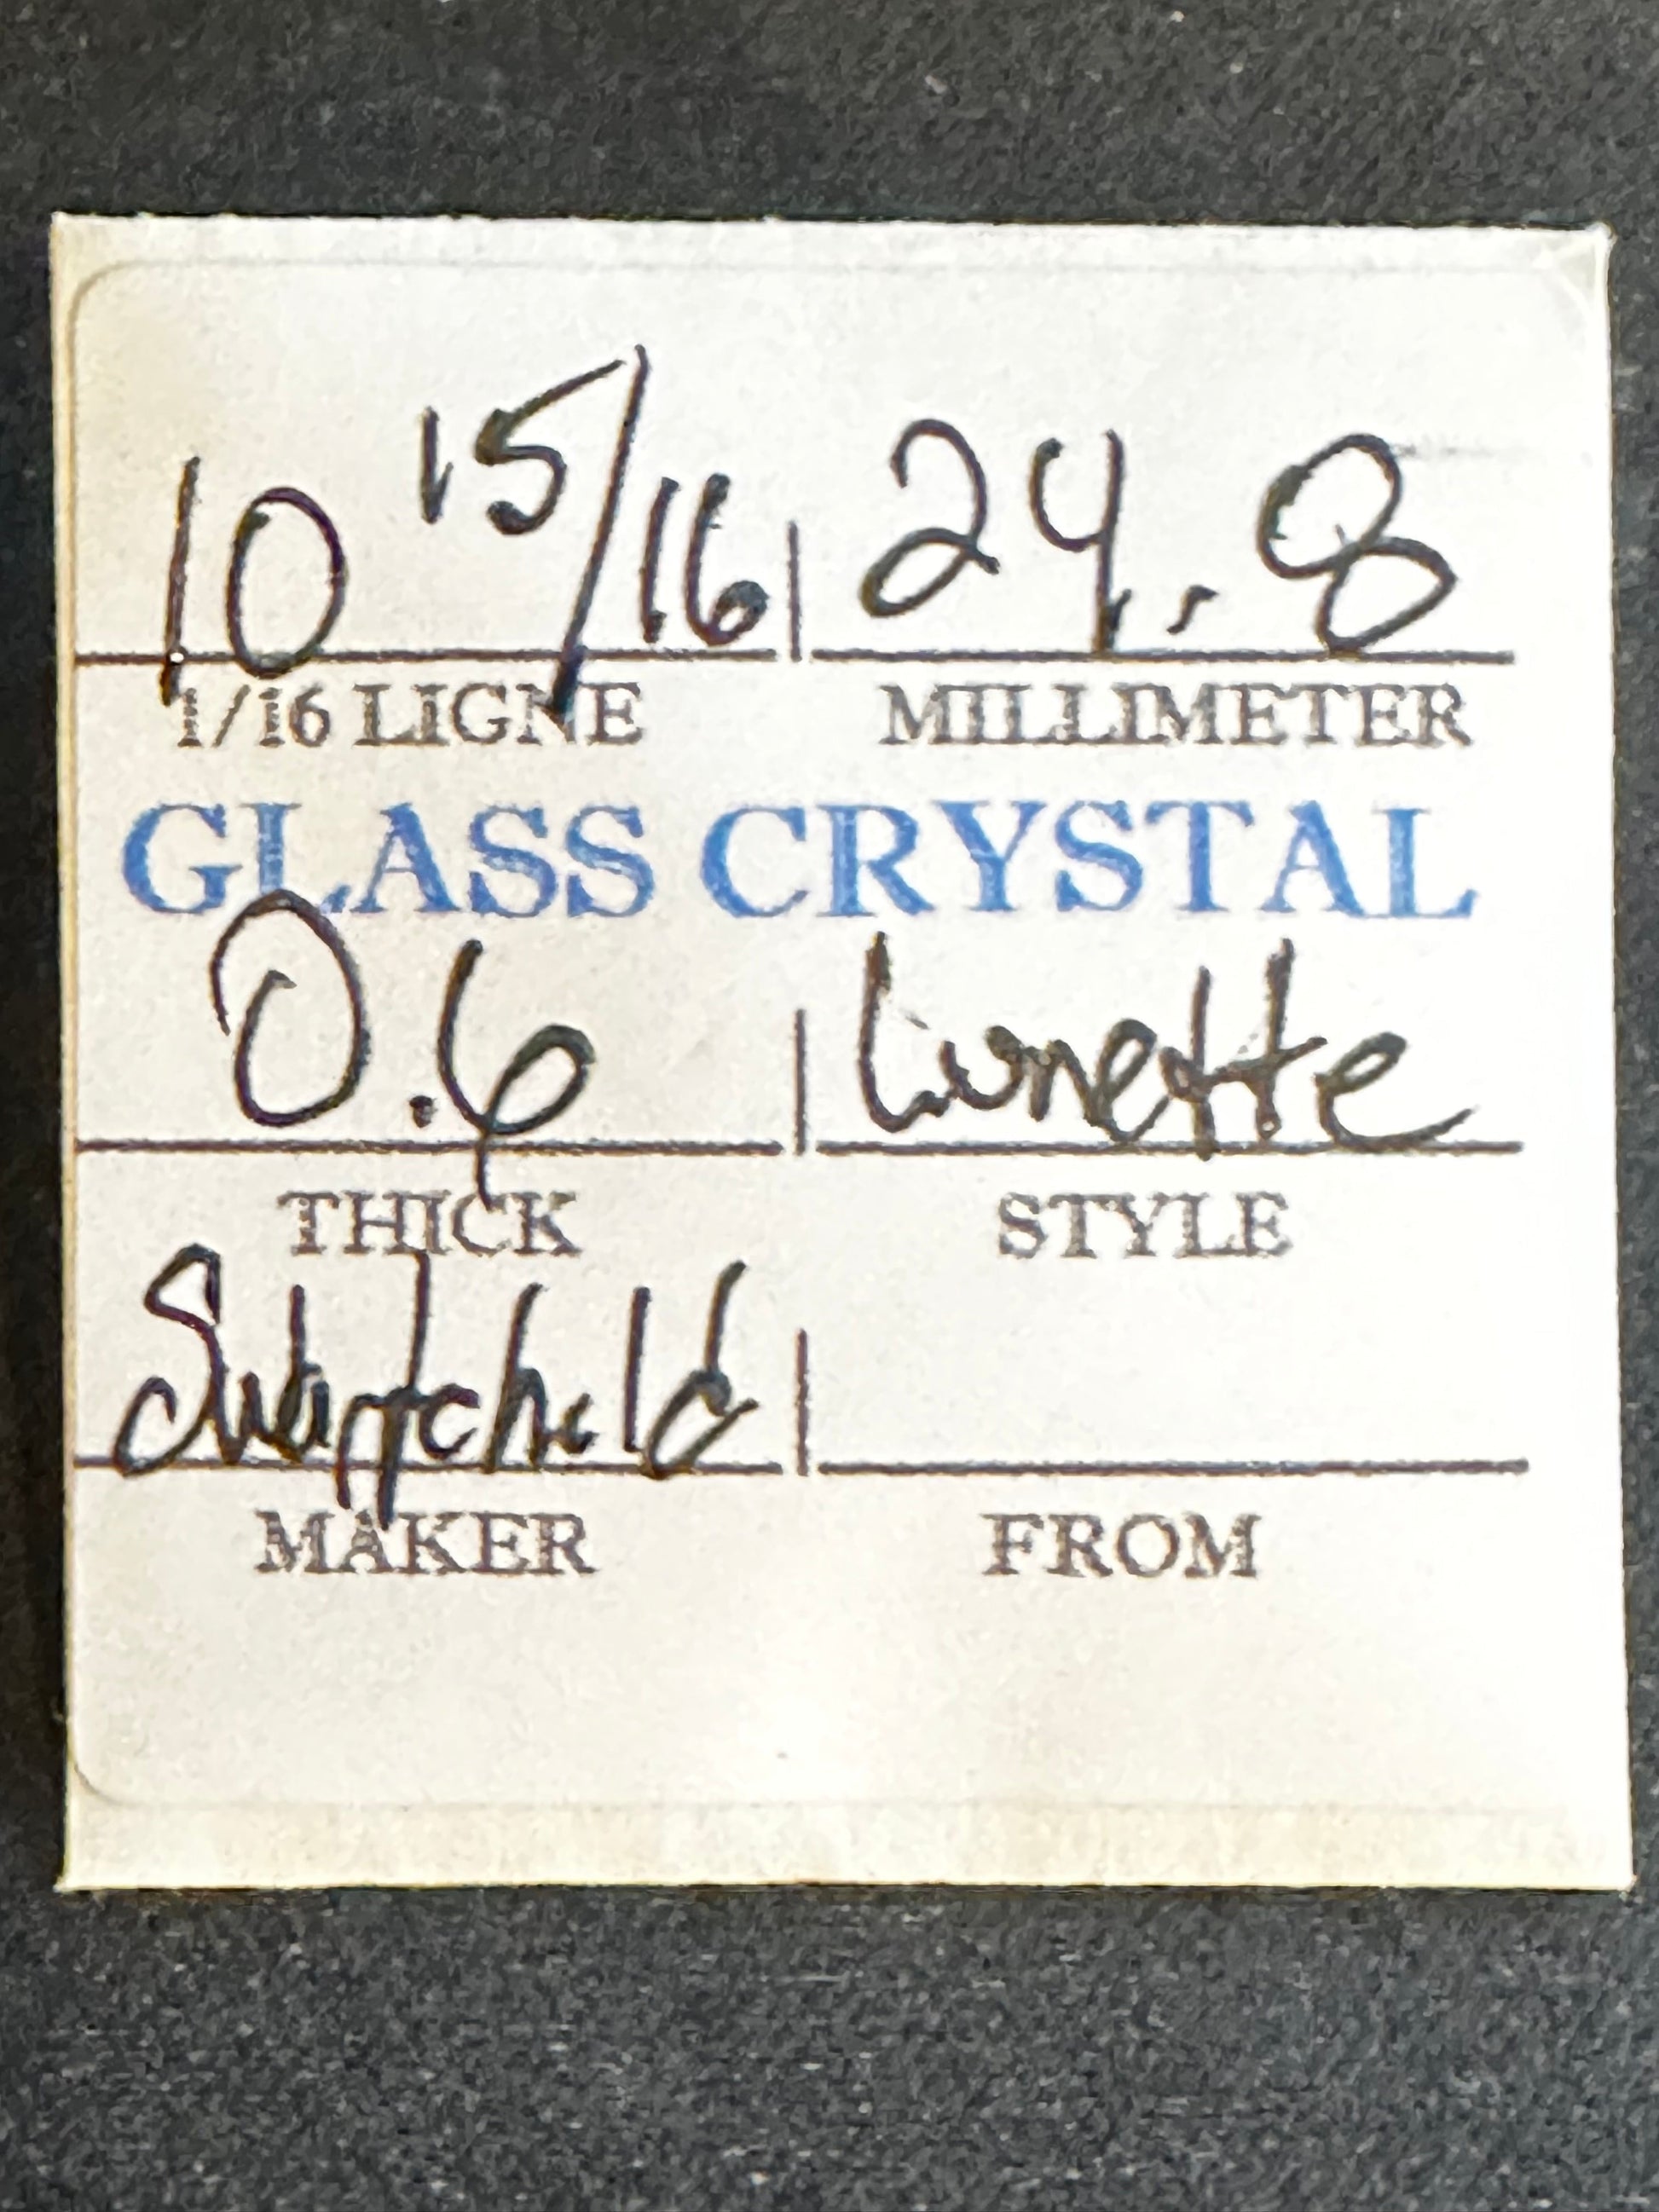 10 15/16 | 24.8
1/16 LIGNE MILLIMETER
GLASS CRYSTAL
0.6 | Lunette
THICK STYLE
Swartchild |
MAKER FROM